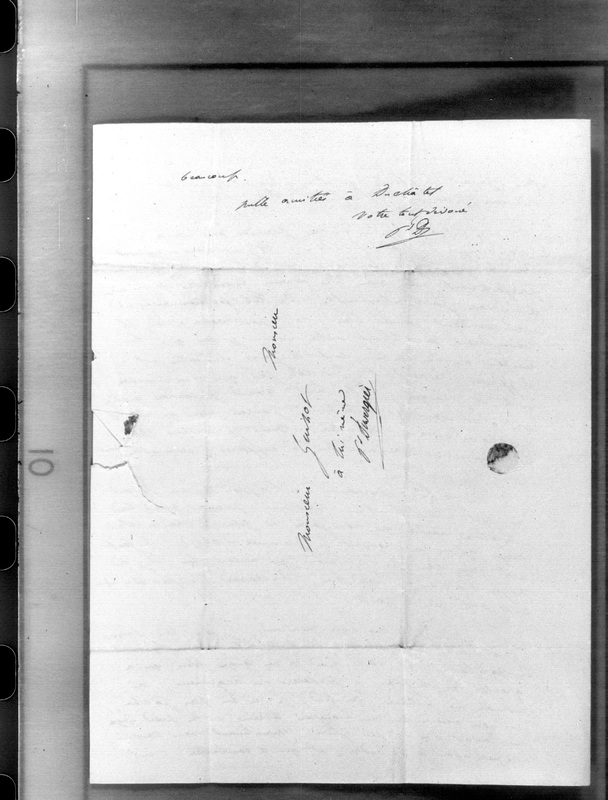 beaucoup.
mille amitiés à Duchâtel
votre tout dévoué
Monsieur
Monsieur Guizot
à lui même
10